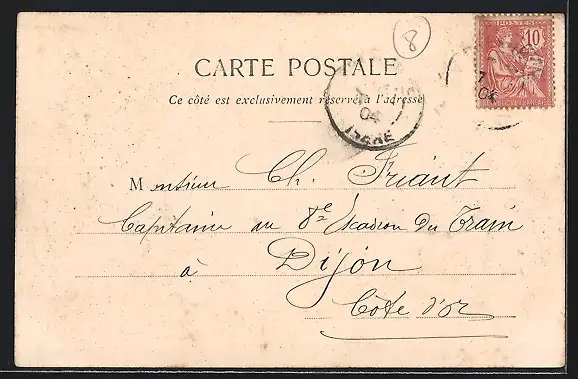 8
POSTES
10
RÉPUBLIQUE FRANÇAISE
7
04
CARTE POSTALE
Ce côté est exclusivement réservé à l'adresse
04
ISERE
Monsieur Ch. Friant
Capitaine au 8e Escadron du Train
à Dijon
Côte d'or